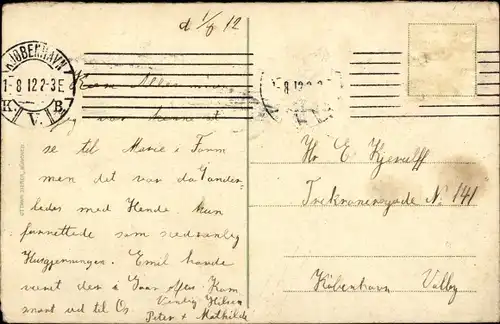 d 1/8 12
KJØBENHAVN
1-8 12 2-3 E
K. V. B.
8 12 2-3
Kære
Jeg var herne at
se til Marie i Form
men det var da ander
ledes med Hende. hun
forrettede som sædvanlig
Husgjerningen. Emil havde
været der i Gaar Aftes Kom
snart ud til Os Venlig Hilsen
Peter & Mathilde
OTTMAR ZIEHER, MÜNCHEN
Hr E Kjerulff
Trekronersgade No 141
København Valby